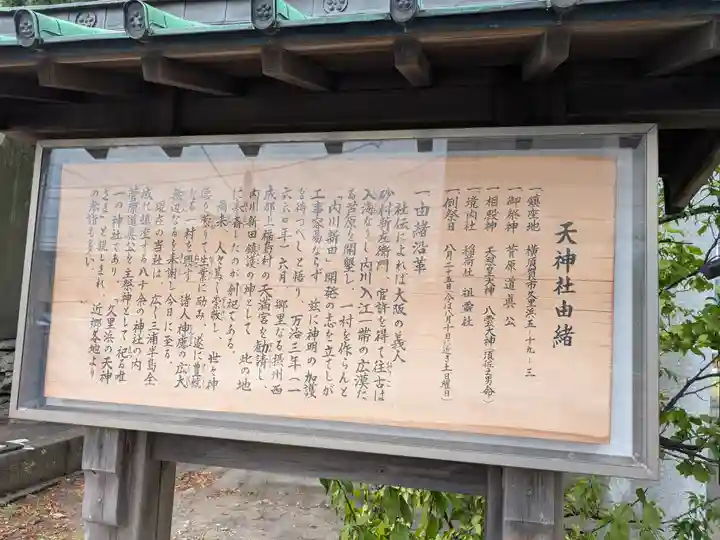 天神社由緒
一 鎮座地 横須賀市久里浜五ー十九ー三
一 御祭神 菅原道真公
一 相殿神 天照皇大神 八雲大神(須佐之男命)
一 境内社 稲荷社 祖霊社
一 例祭日 八月二十五日(今は八月十日に近き土日曜日)
一 由緒沿革
社伝によれば大阪の義人
砂村新左衛門 官許を得て往古は
入海なりし内川入江一帯の広漠た
る芦原を開墾し 一村を作らんと
「内川新田」開発の志を立てしが
工事容易ならず 茲に神明の加護
を得つべしと悟り 万治三年(一
六六〇年)六月 郷里なる摂州西
成郡上福島村の天満宮を勧請し
内川新田鎮護の神として 此の地
に奉斎したのが創祀である。
爾来 人々篤く崇敬し 世々神
徳を蒙りて生業に励み 遂に豊穣
なる一村を興す 諸人神慮の広大
無辺なるを奉謝し今日に至る
現在の当社は 広く三浦半島全
域に鎮座する八十余の神社の内
菅原道真公を主祭神として祀る唯
一の神社であり 久里浜の天神
さまと親しまれ 近郷各地より
の参詣も多い。